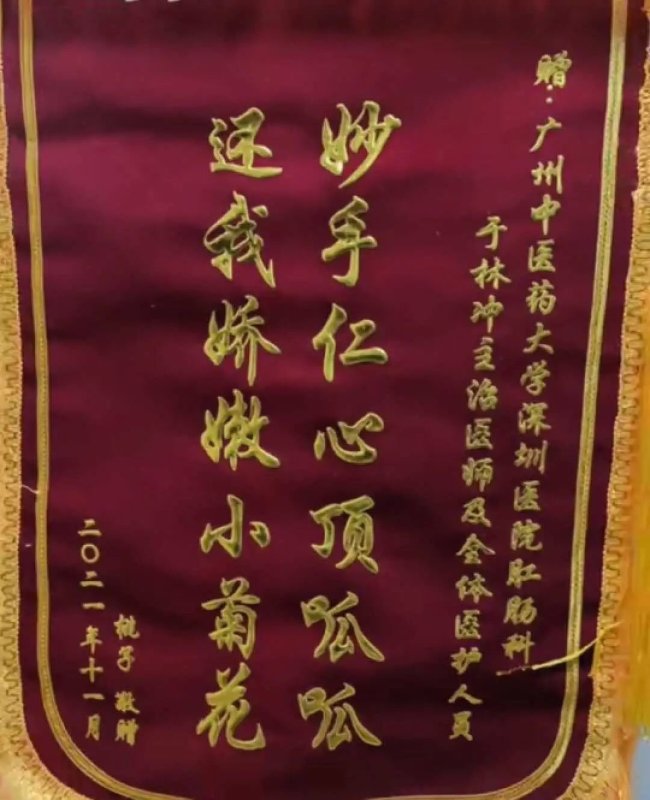 赠:广州中医药大学深圳医院肛肠科
于林冲主治医师及全体医护人员
妙手仁心顶呱呱
还我娇嫩小菊花
桃子 敬赠
二〇二一年十一月